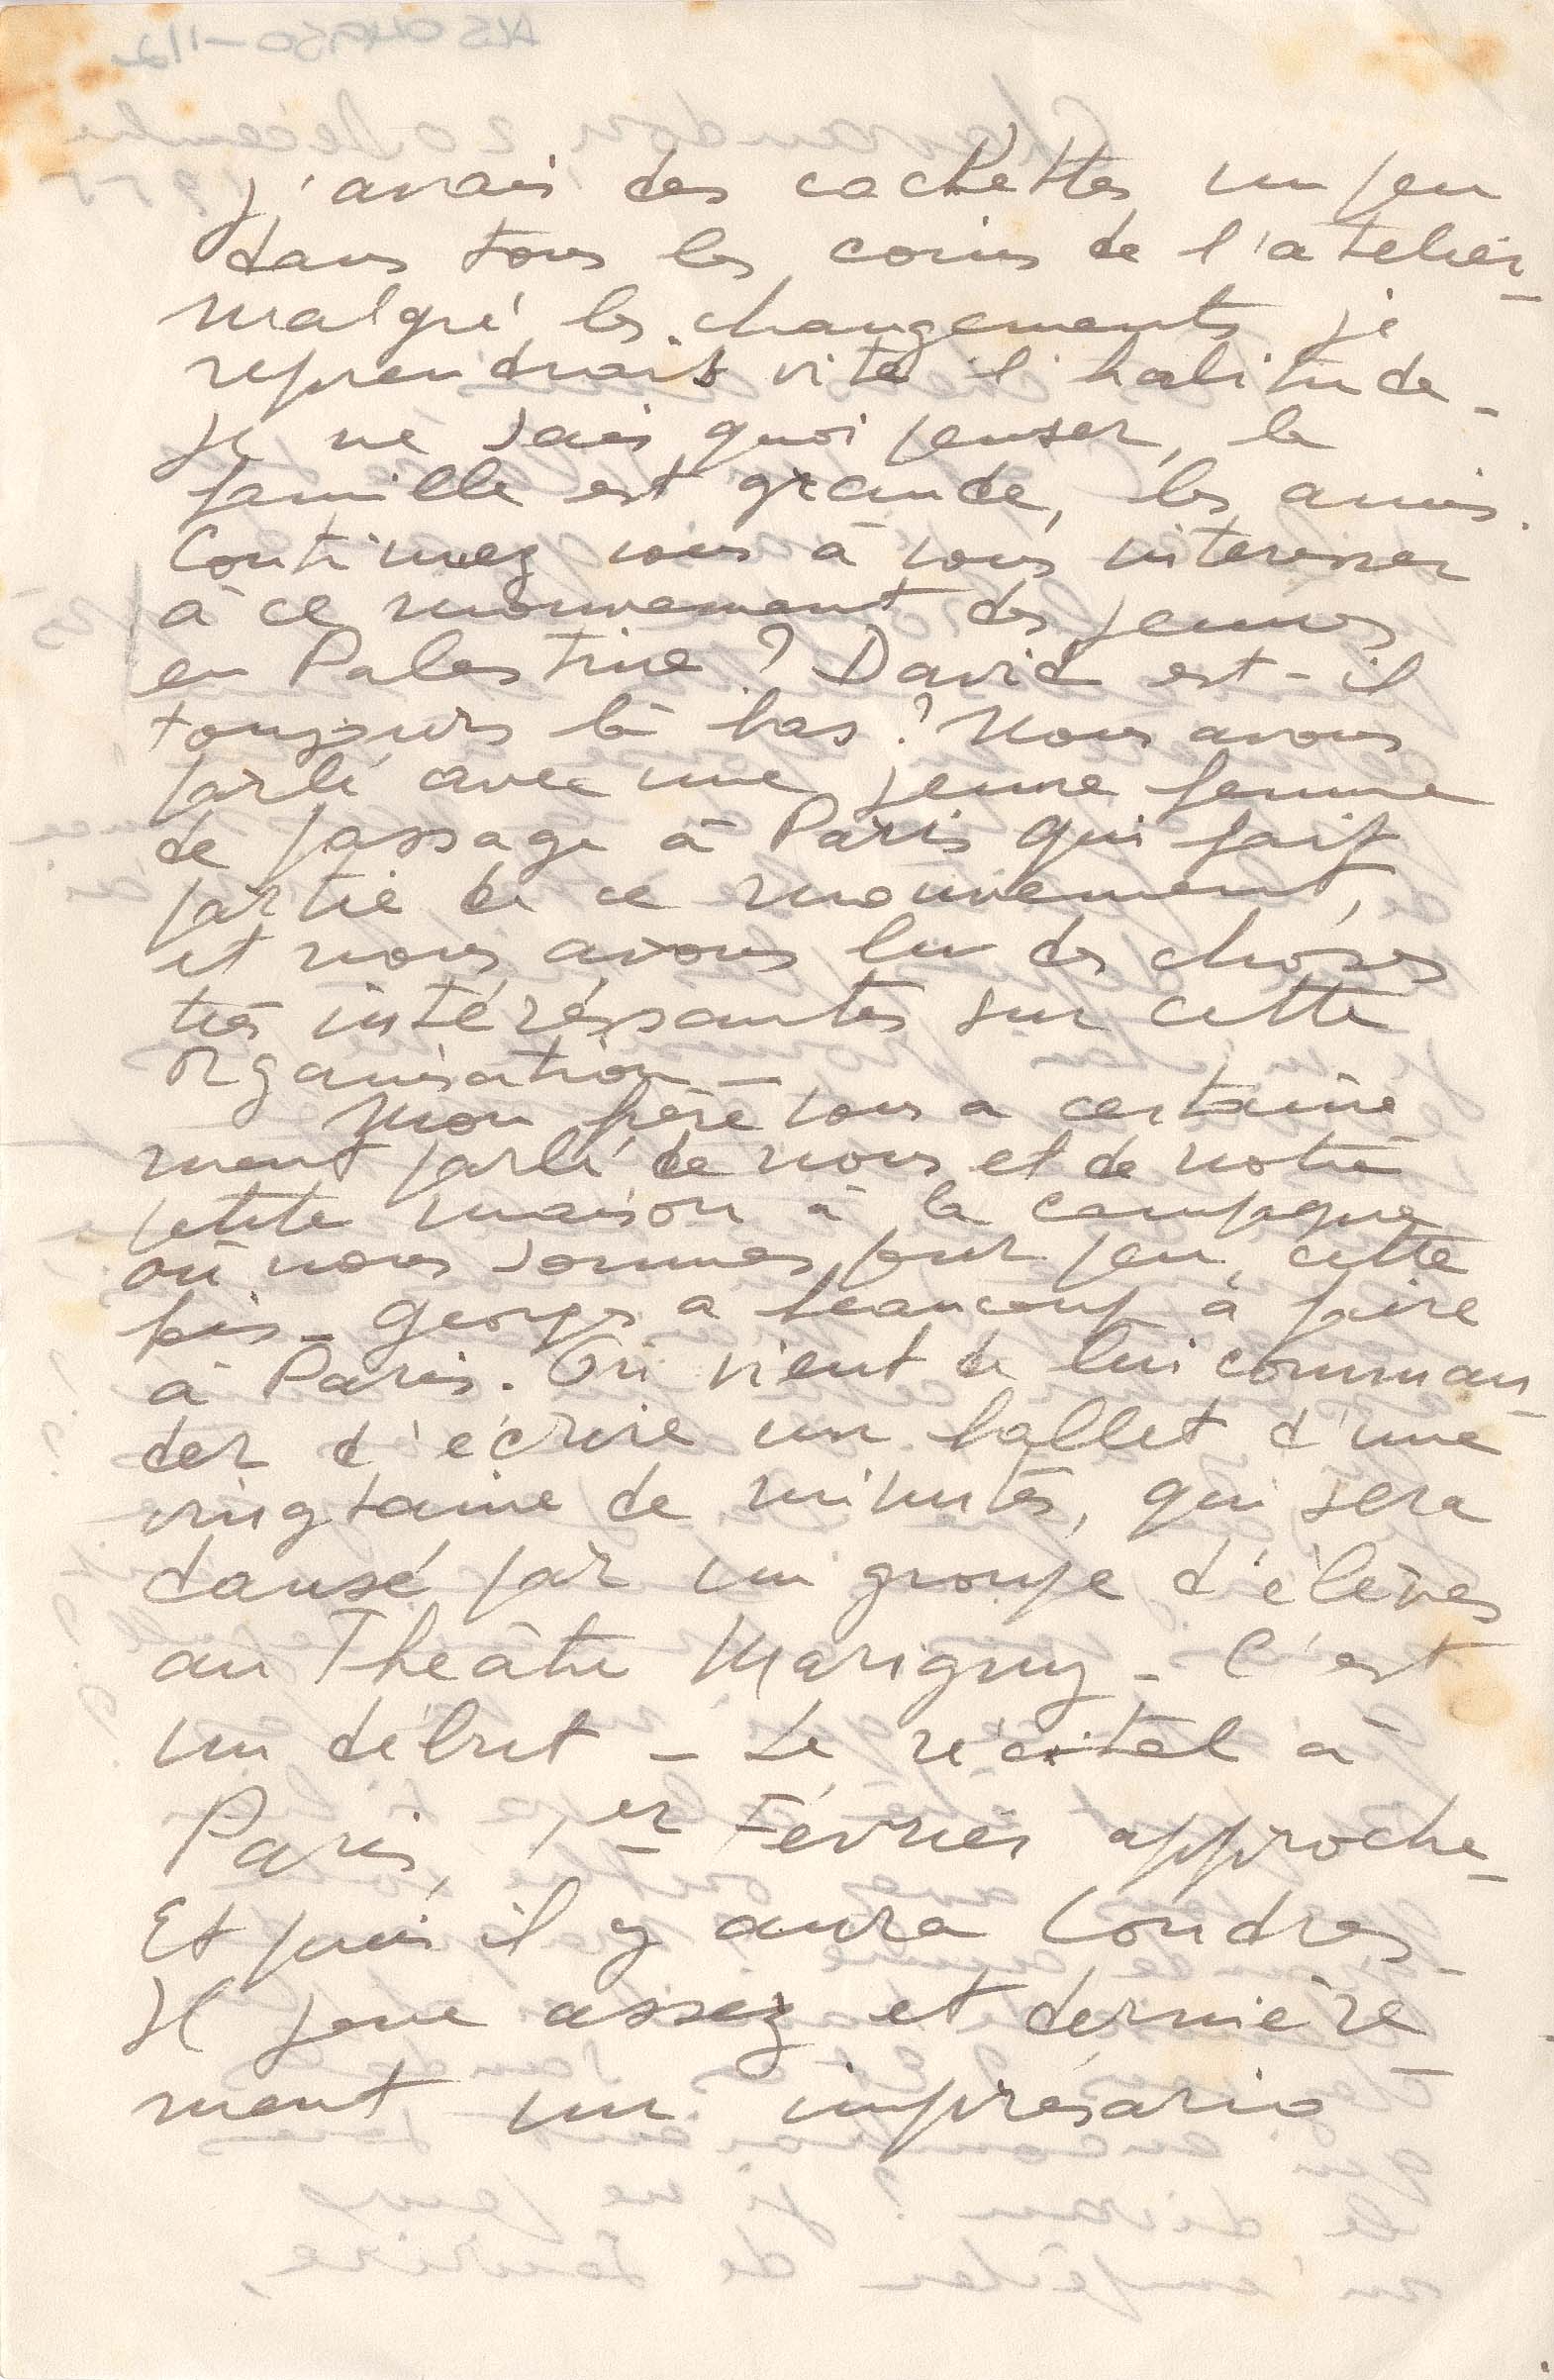 j'avais des cachettes un peu
dans tous les coins de l'atelier_
malgré les changements je
reprendrais vite l'habitude_
Je ne sais quoi penser, la
famille est grande, les amis.
Continuez vous à vous interesser
à ce mouvement des jeunes
en Palestine ? David est-il
toujours là bas ? Nous avons
parlé avec une jeune femme
de passage à Paris qui fait
partie de ce mouvement,
et nous avons lu des choses
très intéréssantes sur cette
organisation _
Mon père vous a certaine
ment parlé de nous et de notre
petite maison à la campagne
où nous sommes pour peu, cette
fois_ Georges a beaucoup à faire
à Paris. On vient de lui comman_
der d'écrire un ballet d'une
vingtaine de minutes, qui sera
dansé par un groupe d'élèves
au Théâtre Marigny _ C'est
un début _ Le récital à
Paris, 1er Février approche_
Et puis il y aura Londres_
Il joue assez et dernière
ment un imprésario